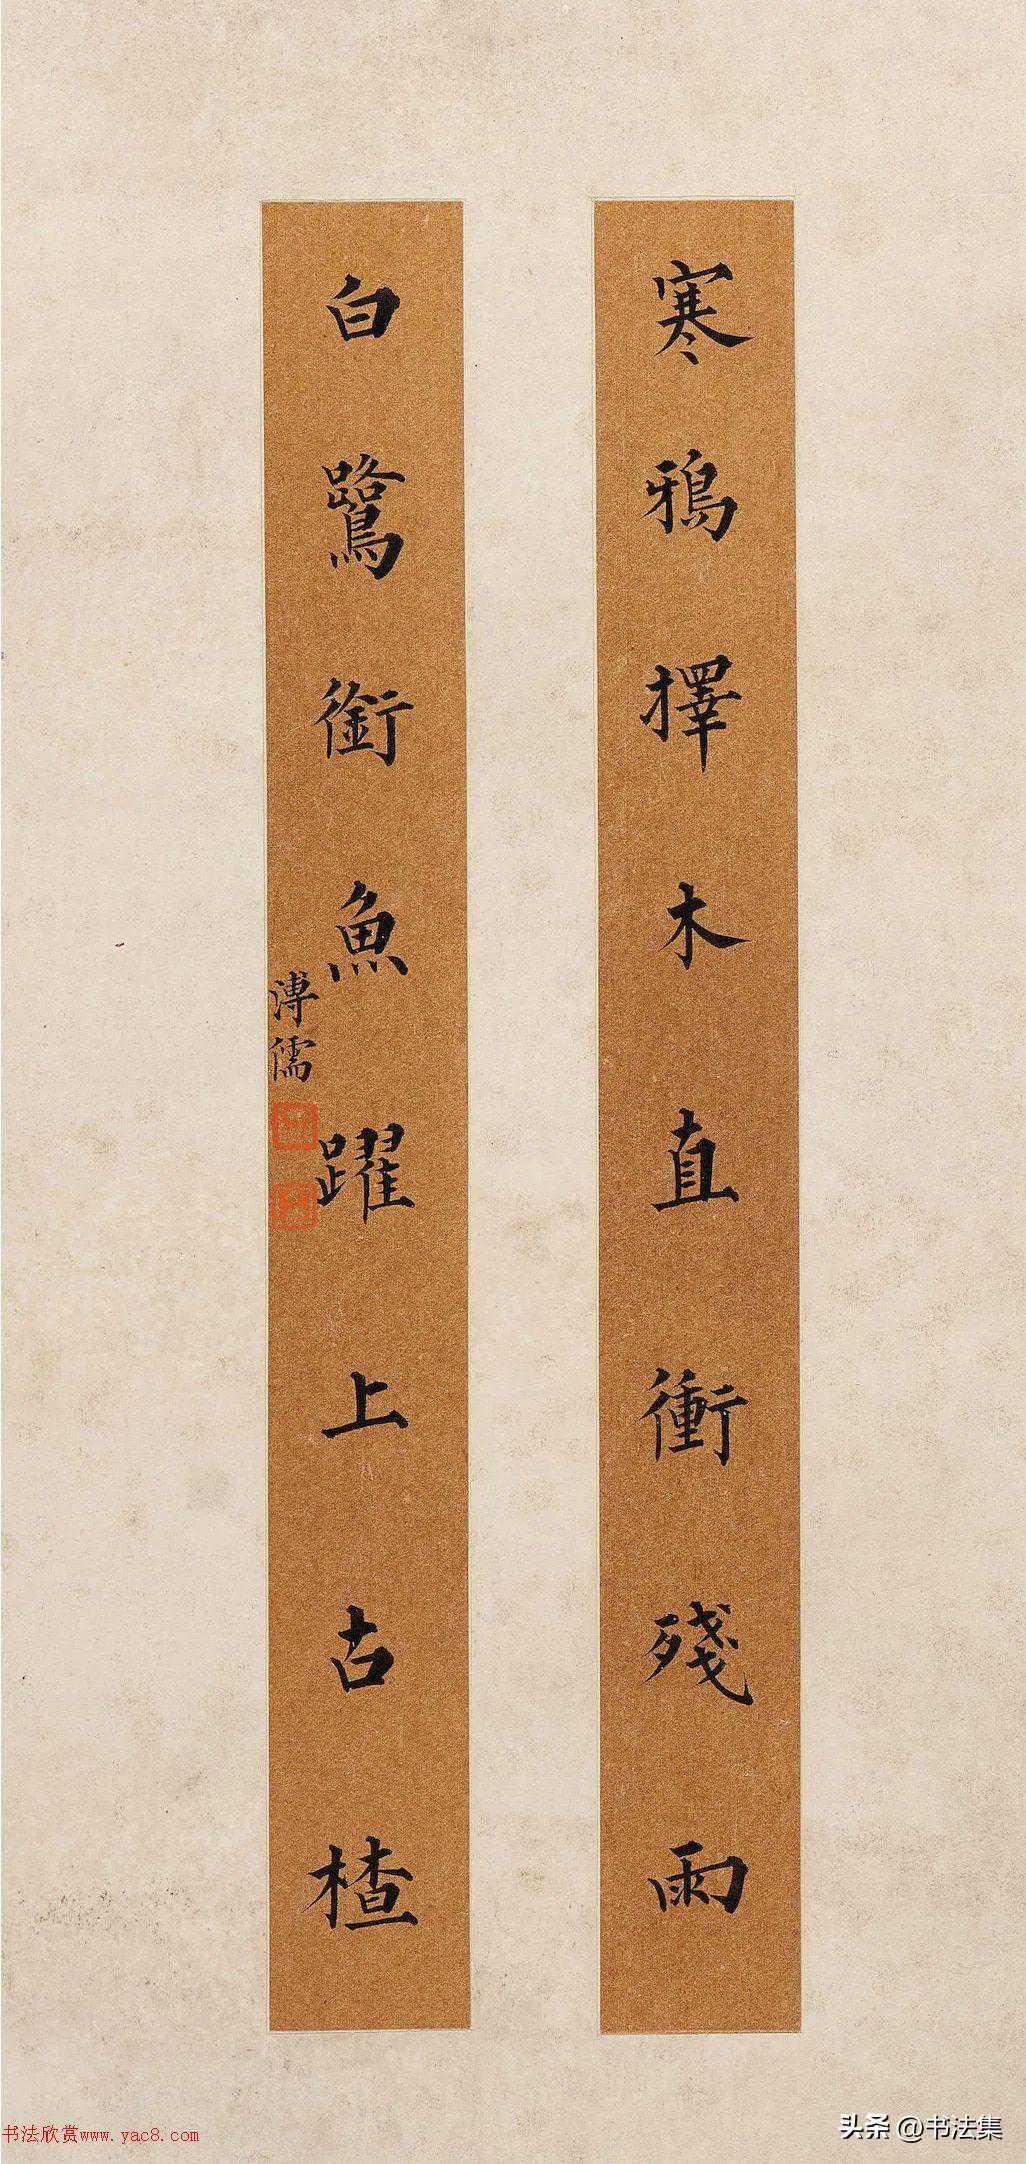 寒鴉擇木直衝殘雨
白鷺銜魚躍上古楂
溥儒
书法欣赏www.yac8.com
头条 @书法集